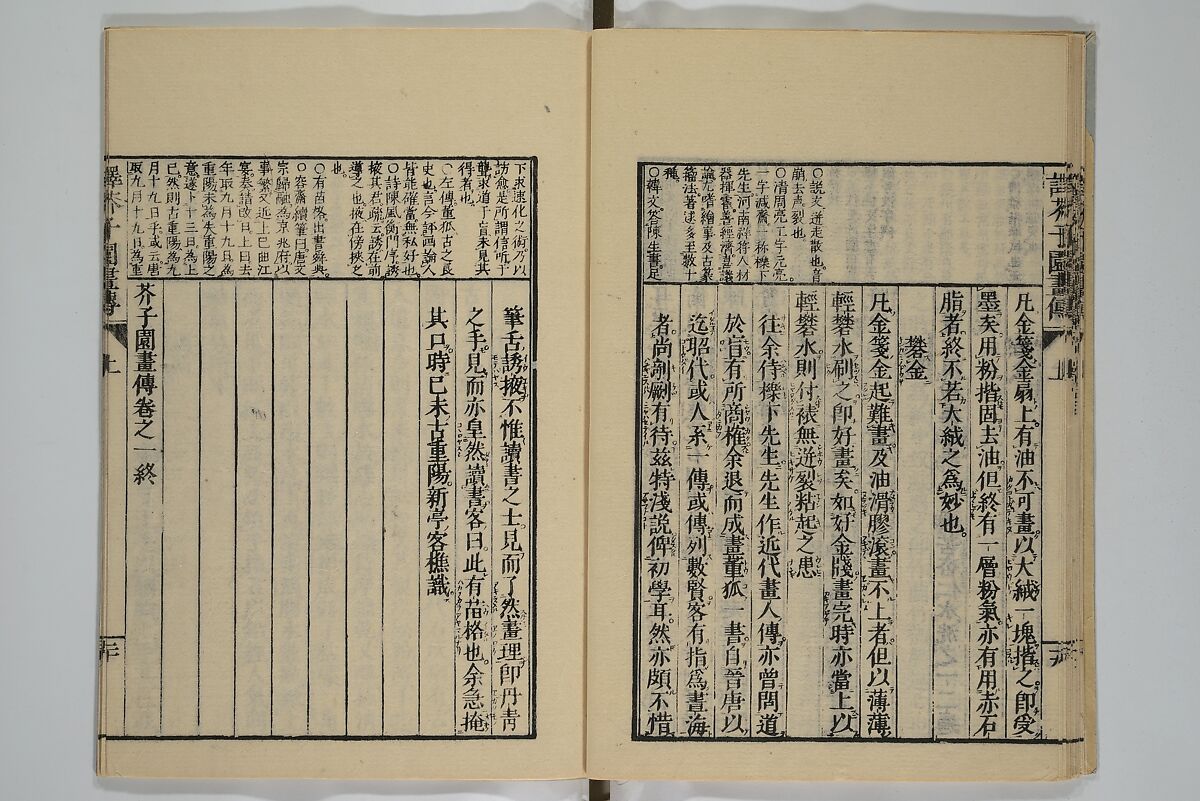 芥子園畫傳
上
凡金箋金扇上有油不可畫以大絨一塊揩之即受
墨矣用粉揩固去油但終有一層粉氣亦有用赤石
脂者終不若大絨之為妙也
礬金
凡金箋金起難畫及油滑膠滾畫不上者但以薄薄
輕礬水刷之即好畫矣如好金牋畫完時亦當上以
輕礬水則付裱無迸裂粘起之患
往余侍櫟下先生先生作近代畫人傳亦曾問道
於盲有所商榷余退而成畫董狐一書自晉唐以
迄昭代或人系一傳或傳列數賢客有指為畫海
者尚剞劂有待茲特淺說俾初學耳然亦頗不惜
○說文迸走散也音
崩去声裂也
○清周亮工字元亮
一字減齋一称櫟下
先生河南祥符人材
器揮霍善經濟喜議
論尤嗜繪事及古篆
籀法著述多至數十
種
○韓文答陳生書足
下求速化之術乃以
訪愈是所謂借听于
聾求道于盲未見其
得者也
○左傳董狐古之良
史也言今評画論人
皆能確當無私好也
○詩陳風衡門序誘
掖其君疏云誘在前
導之也掖在傍挾之
也
○有苗格出書舜典
○容齋續筆曰唐文
宗歸融為京兆府以
事繁文近上巳曲江
宴奏請改日上曰去
年取九月十九日為
重陽未為失重陽之
意遂下十三日為上
巳然則古重陽為九
月十九日乎或云唐
取九月十九日為重
筆舌誘掖不惟讀書之士見而了然畫理即丹青
之手見而亦皇然讀書客曰此有苗格也余急掩
其口時己未古重陽新亭客樵識
芥子園畫傳卷之一終
芥子園畫傳
上
二十